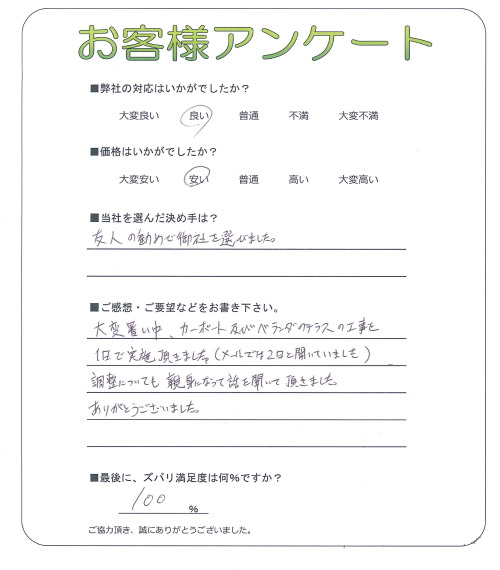 お客様アンケート
■弊社の対応はいかがでしたか?
大変良い 良い 普通 不満 大変不満
■価格はいかがでしたか?
大変安い 安い 普通 高い 大変高い
■当社を選んだ決め手は?
友人の勧めで御社を選びました。
■ご感想・ご要望などをお書き下さい。
大変暑い中、カーポート及びベランダのテラスの工事を
1日で実施頂きました。(メールでは2日と聞いていました)
調整についても親身になって話を聞いて頂きました。
ありがとうございました。
■最後に、ズバリ満足度は何%ですか?
100 %
ご協力頂き、誠にありがとうございました。